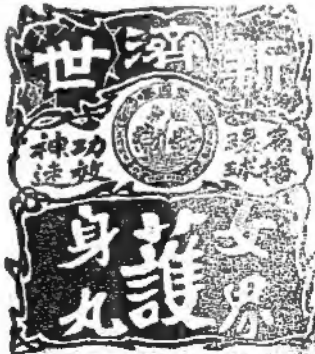 新濟世
名播
環球
功效
神速
女界
護
身丸